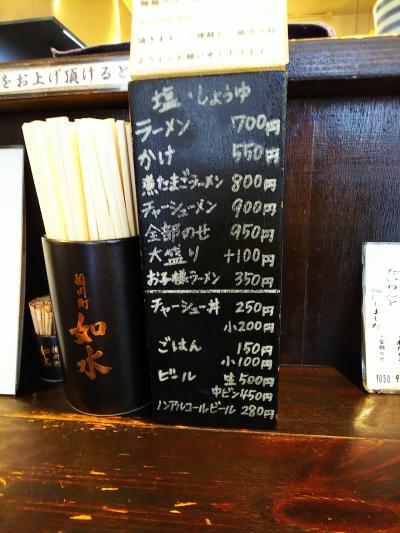 頂きます。
をお上げ頂けると
塩・しょうゆ
ラーメン 700円
かけ 550円
煮たまごラーメン 800円
チャーシューメン 900円
全部のせ 950円
大盛り +100円
お子様ラーメン 350円
チャーシュー丼 250円
小200円
ごはん 150円
小100円
ビール 生500円
中ビン450円
ノンアルコールビール 280円
如水
しました
1050